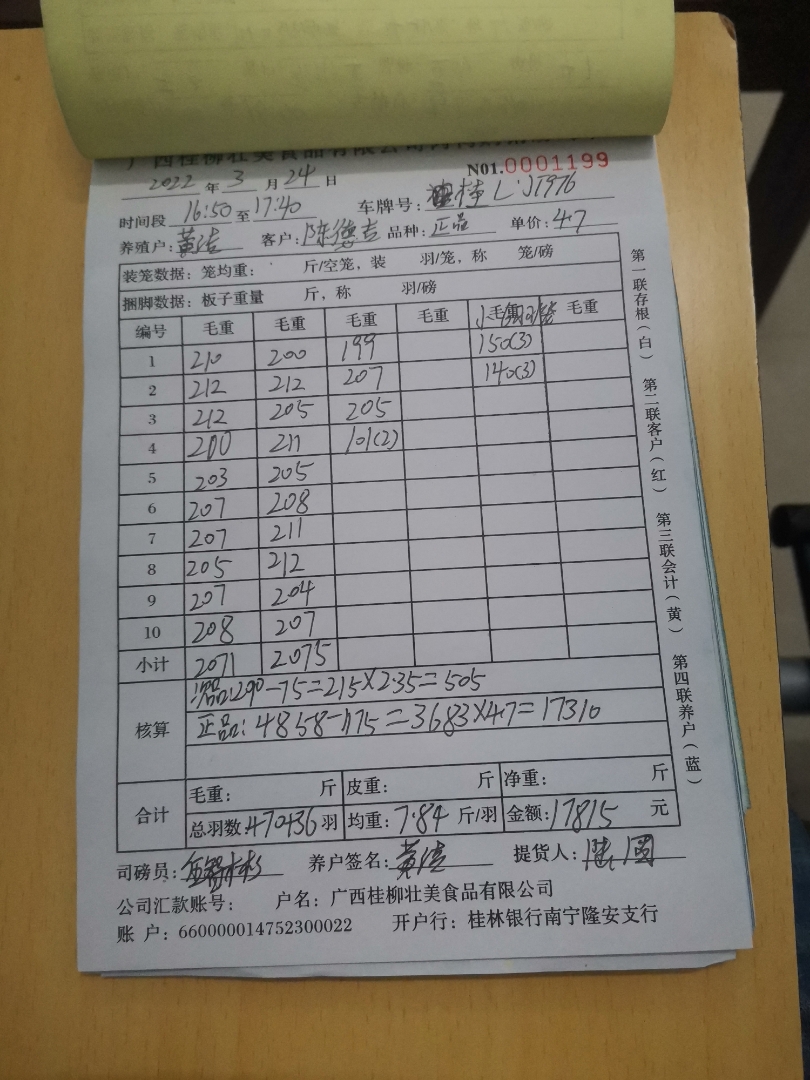 广西桂柳壮美食品有限公司
N01.0001199
2022 年 3 月 24 日
时间段 16:50 至 17:40 车牌号: 桂L·JT976
养殖户: 黄洁 客户: 陈德吉 品种: 正品 单价: 4.7
装笼数据: 笼均重: 斤/空笼, 装 羽/笼, 称 笼/磅
捆脚数据: 板子重量 斤, 称 羽/磅
编号 毛重 毛重 毛重 毛重 毛重 毛重
1 210 200 199 150(3)
2 212 212 207 140(3)
3 212 205 205
4 200 211 101(2)
5 203 205
6 207 208
7 207 211
8 205 212
9 207 204
10 208 207
小计 2071 2075
次品: 290-75=215×2.35=505
核算 正品: 4858-1175=3683×4.7=17310
合计 毛重: 斤 皮重: 斤 净重: 斤
总羽数 470+36 羽 均重: 7.84 斤/羽 金额: 17815 元
司磅员: 养户签名: 黄洁 提货人:
公司汇款账号: 户名: 广西桂柳壮美食品有限公司
账 户: 660000014752300022 开户行: 桂林银行南宁隆安支行
第一联存根(白) 第二联客户(红) 第三联会计(黄) 第四联养户(蓝)